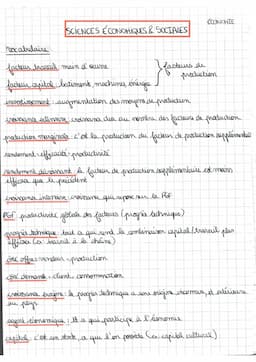 ÉCONOMIE
SCIENCES ÉCONOMIQUES & SOCIALES
vocabulaire
facteur travail: main d'œuvre
facteurs de production
facteur capital: bâtiment, machines, énergie
investissement: augmentation des moyens de production
croissance extensive: croissance due au nombre des facteurs de production
production marginale: c'est la production du facteur de production supplémentaire
rendement: efficacité, productivité
rendement décroissant: le facteur de production supplémentaire est moins
efficace que le précédent
croissance intensive: croissance qui repose sur la PGF
PGF: productivité globale des facteurs (progrès technique)
progrès technique: tout ce qui rend la combinaison capital/travail plus
efficace (ex: travail à la chaîne)
côté offre: vendeur, production
côté demande: client, consommation
croissance exogène: le progrès technique a une origine inconnue, et extérieure
au pays
agent économique: Et à qui participe à l'économie
capital: c'est un stock, ce que l'on possède (ex: capital culturel)